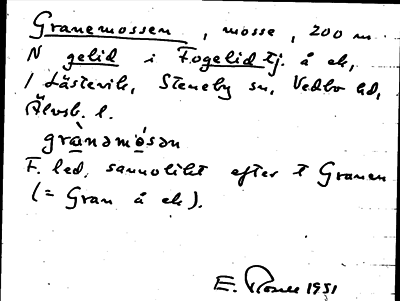 Granemossen, mosse, 200 m
N gelid i Fogelidtj. å ek,
/ Lästerik, Steneby sn, Vedbo hd,
Älvsb. l.
grànəmósən
F. led. sannolikt efter t Granen
(= Gran å ek).
E. 1951